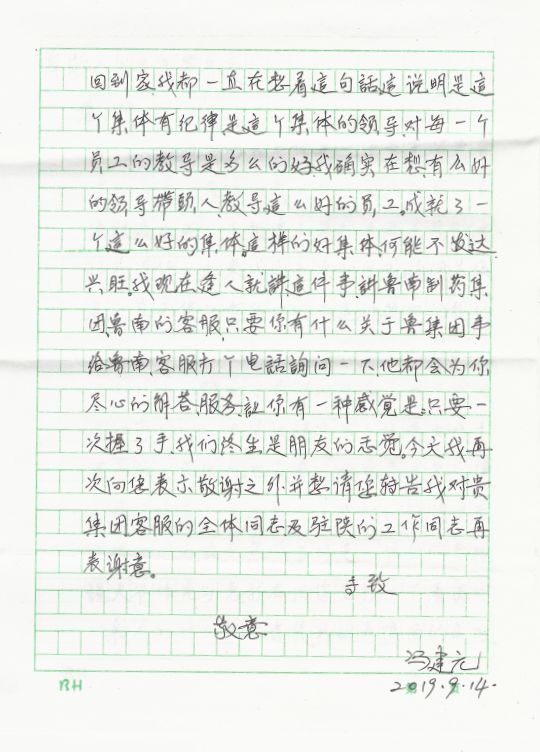 回到家,我都一直在想着這句話這说明是這
个集体有纪律是這个集体的领导,对每一个
员工的教导是多么的好,我确实在想,有么好
的领导带头人,教导這么好的员工。成就了一
个這么好的集体。這样的好集体,何能不发达
兴旺。我现在逢人就讲這件事,讲鲁南制药集
团,鲁南的客服,只要你有什么关于鲁集团事
给鲁南,客服打个电話詢问一下,他都会为你
尽心的解答,服务,让你有一种感觉是:只要一
次握了手,我们终生是朋友的感觉。今天我再
次向您表示敬谢之外并想请您转告我对贵
集团客服的全体同志及驻陕的工作同志再
表谢意。
手致
敬意
冯建元
2019.9.14.
BH